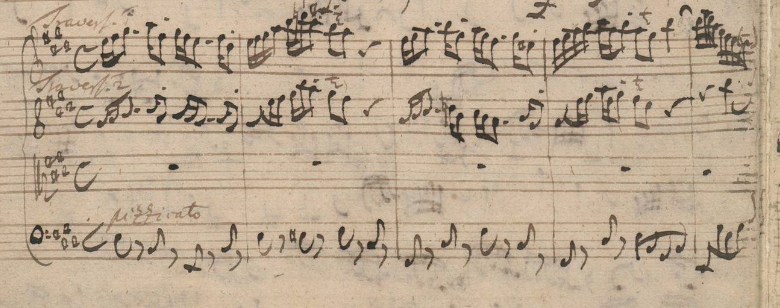 Travers. 1
Travers. 2
pizzicato